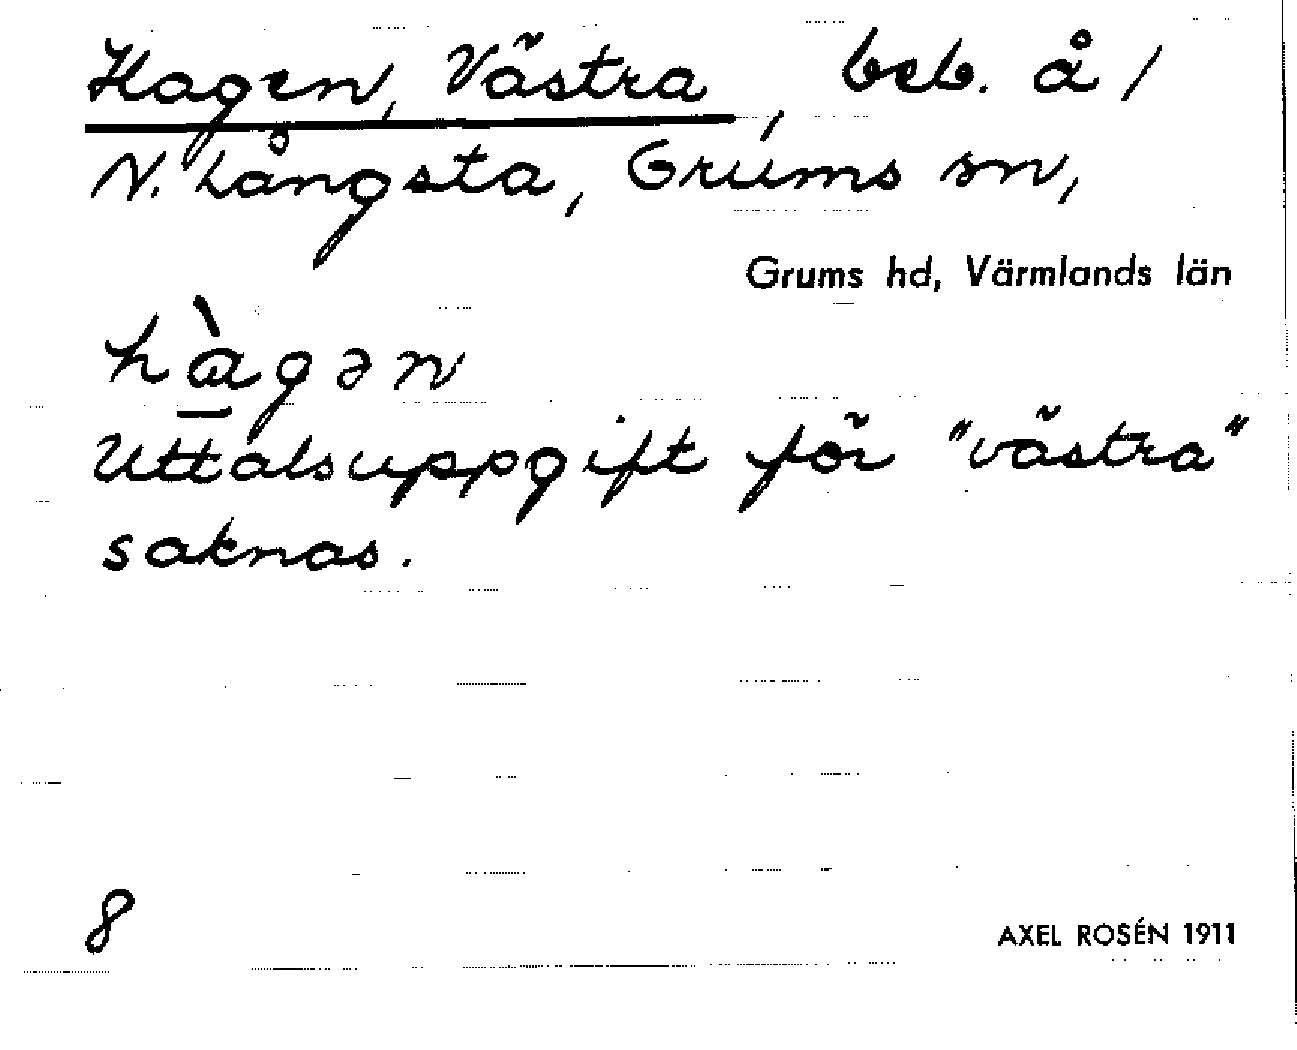 Hagen, Västra, beb. å /
N. Långsta, Grums sn,
Grums hd, Värmlands län
hɑ̱̀gən
Uttalsuppgift för "västra"
saknas.
8
AXEL ROSÉN 1911